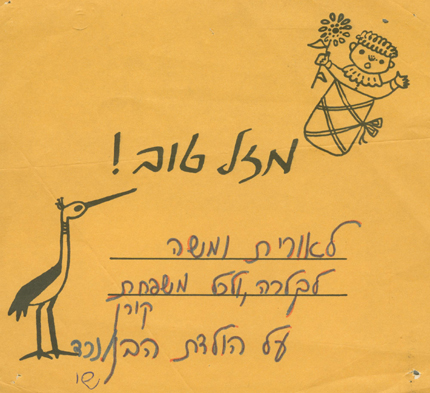 מזל טוב!
לאורית ומשה
לקלרה, ולכל משפחת
קורן
על הולדת הבן/נכד